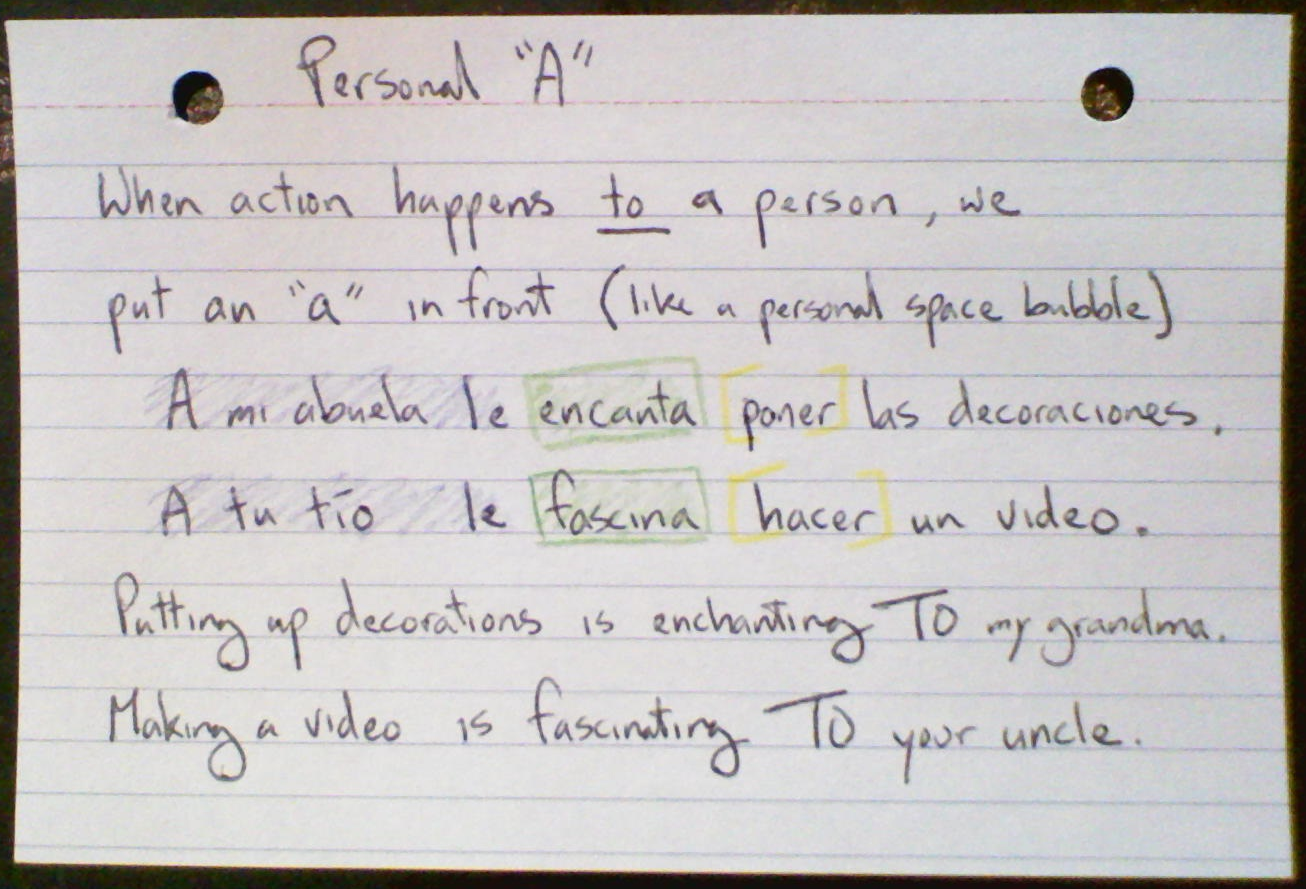 Personal "A"
When action happens to a person, we
put an "a" in front (like a personal space bubble)
A mi abuela le encanta poner las decoraciones.
A tu tío le fascina hacer un video.
Putting up decorations is enchanting TO my grandma.
Making a video is fascinating TO your uncle.